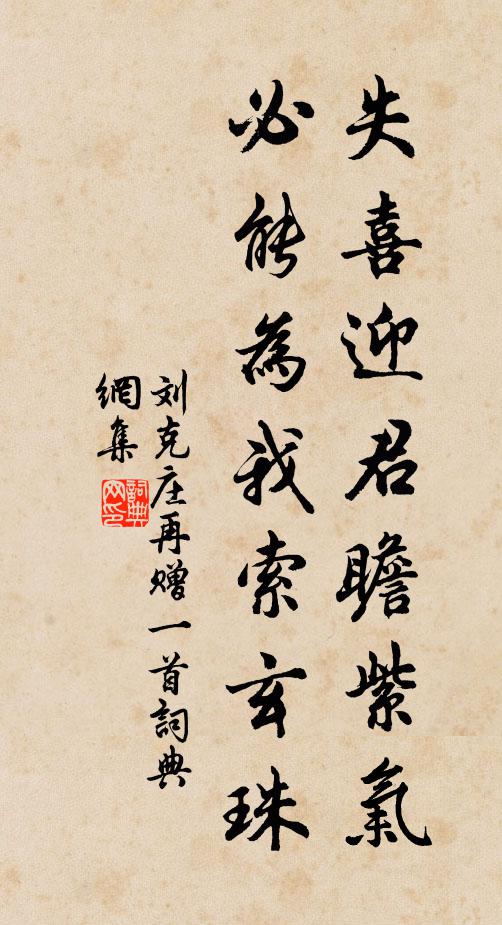 失喜迎君瞻紫氣
必能為我索玄珠
刘克庄再赠一首詞典
網集
詞典
网印